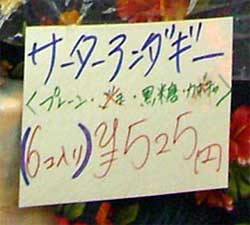 サーターアンダギー
<プレーン・ ・黒糖・カボチャ>
(6コ入り)¥525円